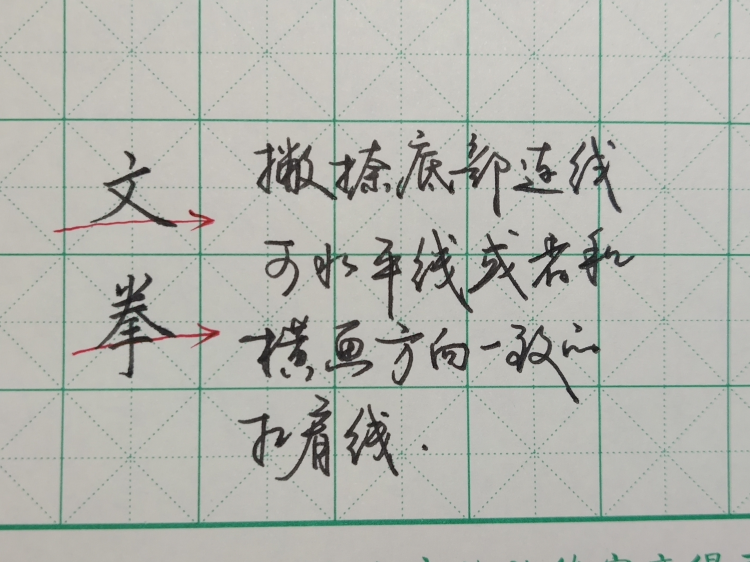 文
拳
撇捺底部连线
可水平线或者和
横画方向一致的
扛肩线.